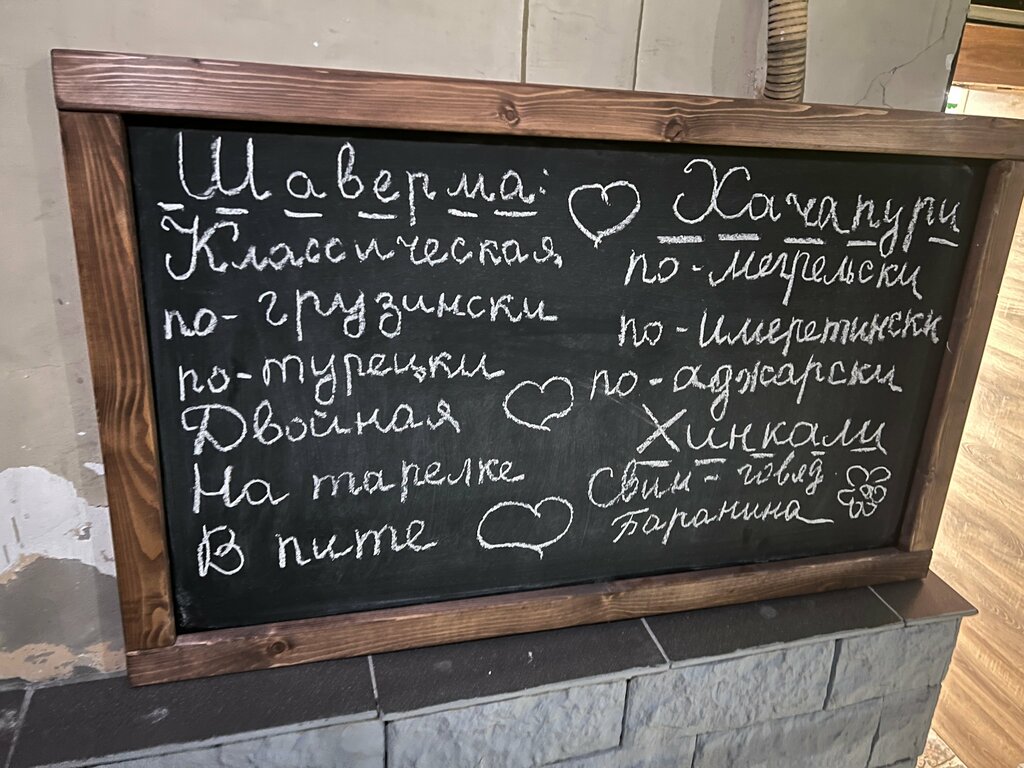 Шаверма:
Классическая
по-грузински
по-турецки
Двойная
На тарелке
В пите
Хачапури
по-мегрельски
по-имеретински
по-аджарски
Хинкали
Свин-говяд
Баранина